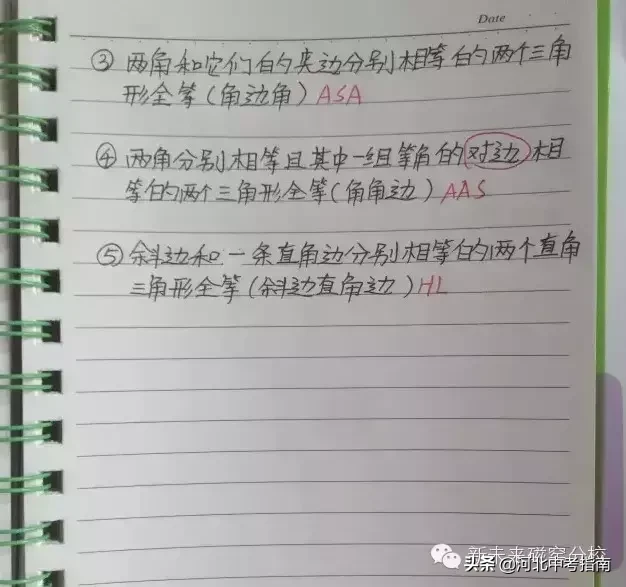 Date
③ 两角和它们的夹边分别相等的两个三角
形全等(角边角) ASA
④ 两角分别相等且其中一组等角的对边相
等的两个三角形全等(角角边) AAS
⑤ 斜边和一条直角边分别相等的两个直角
三角形全等(斜边直角边) HL
新未来磁窑分校
头条@河北中考指南